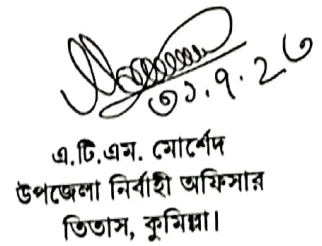 ৩১.৭.২৩
এ.টি.এম. মোর্শেদ
উপজেলা নির্বাহী অফিসার
তিতাস, কুমিল্লা।